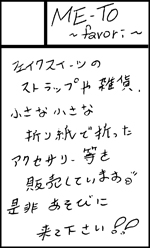 ME-TO
~favori~
フェイクスイーツの
ストラップや雑貨、
小さな小さな
折り紙で折った
アクセサリー等を
販売しています
是非あそびに
来て下さい!!